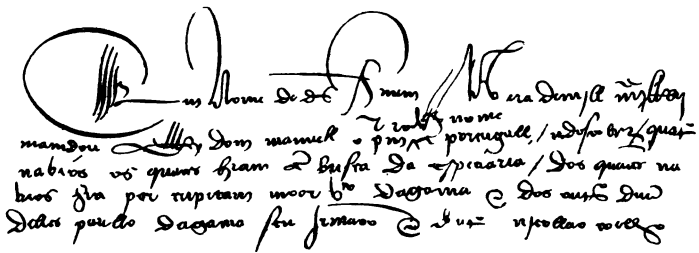 em Nome de ds Amem Na era de mill iiij
nome
mamdou el Rey dom manuell o prº em portugall / a descobrir / quatº
nabios os quaes hiam em busca da especiaria / dos quaes na
bios hia por capitam moor Vco dagama e dos outs duũ
delles paullo dagama seu Jrmaoo e dout nicollao coelho